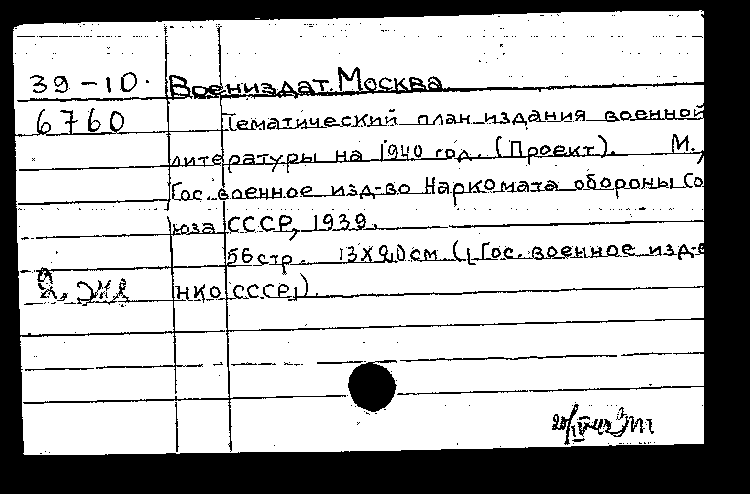 39-10. Воениздат. Москва
6760 Тематический план издания военной
литературы на 1940 год. (Проект). М.,
Гос. военное изд-во Наркомата обороны Со
юза СССР, 1939.
56 стр. 13х20см (Гос. военное изд-в
2 экз НКО СССР).